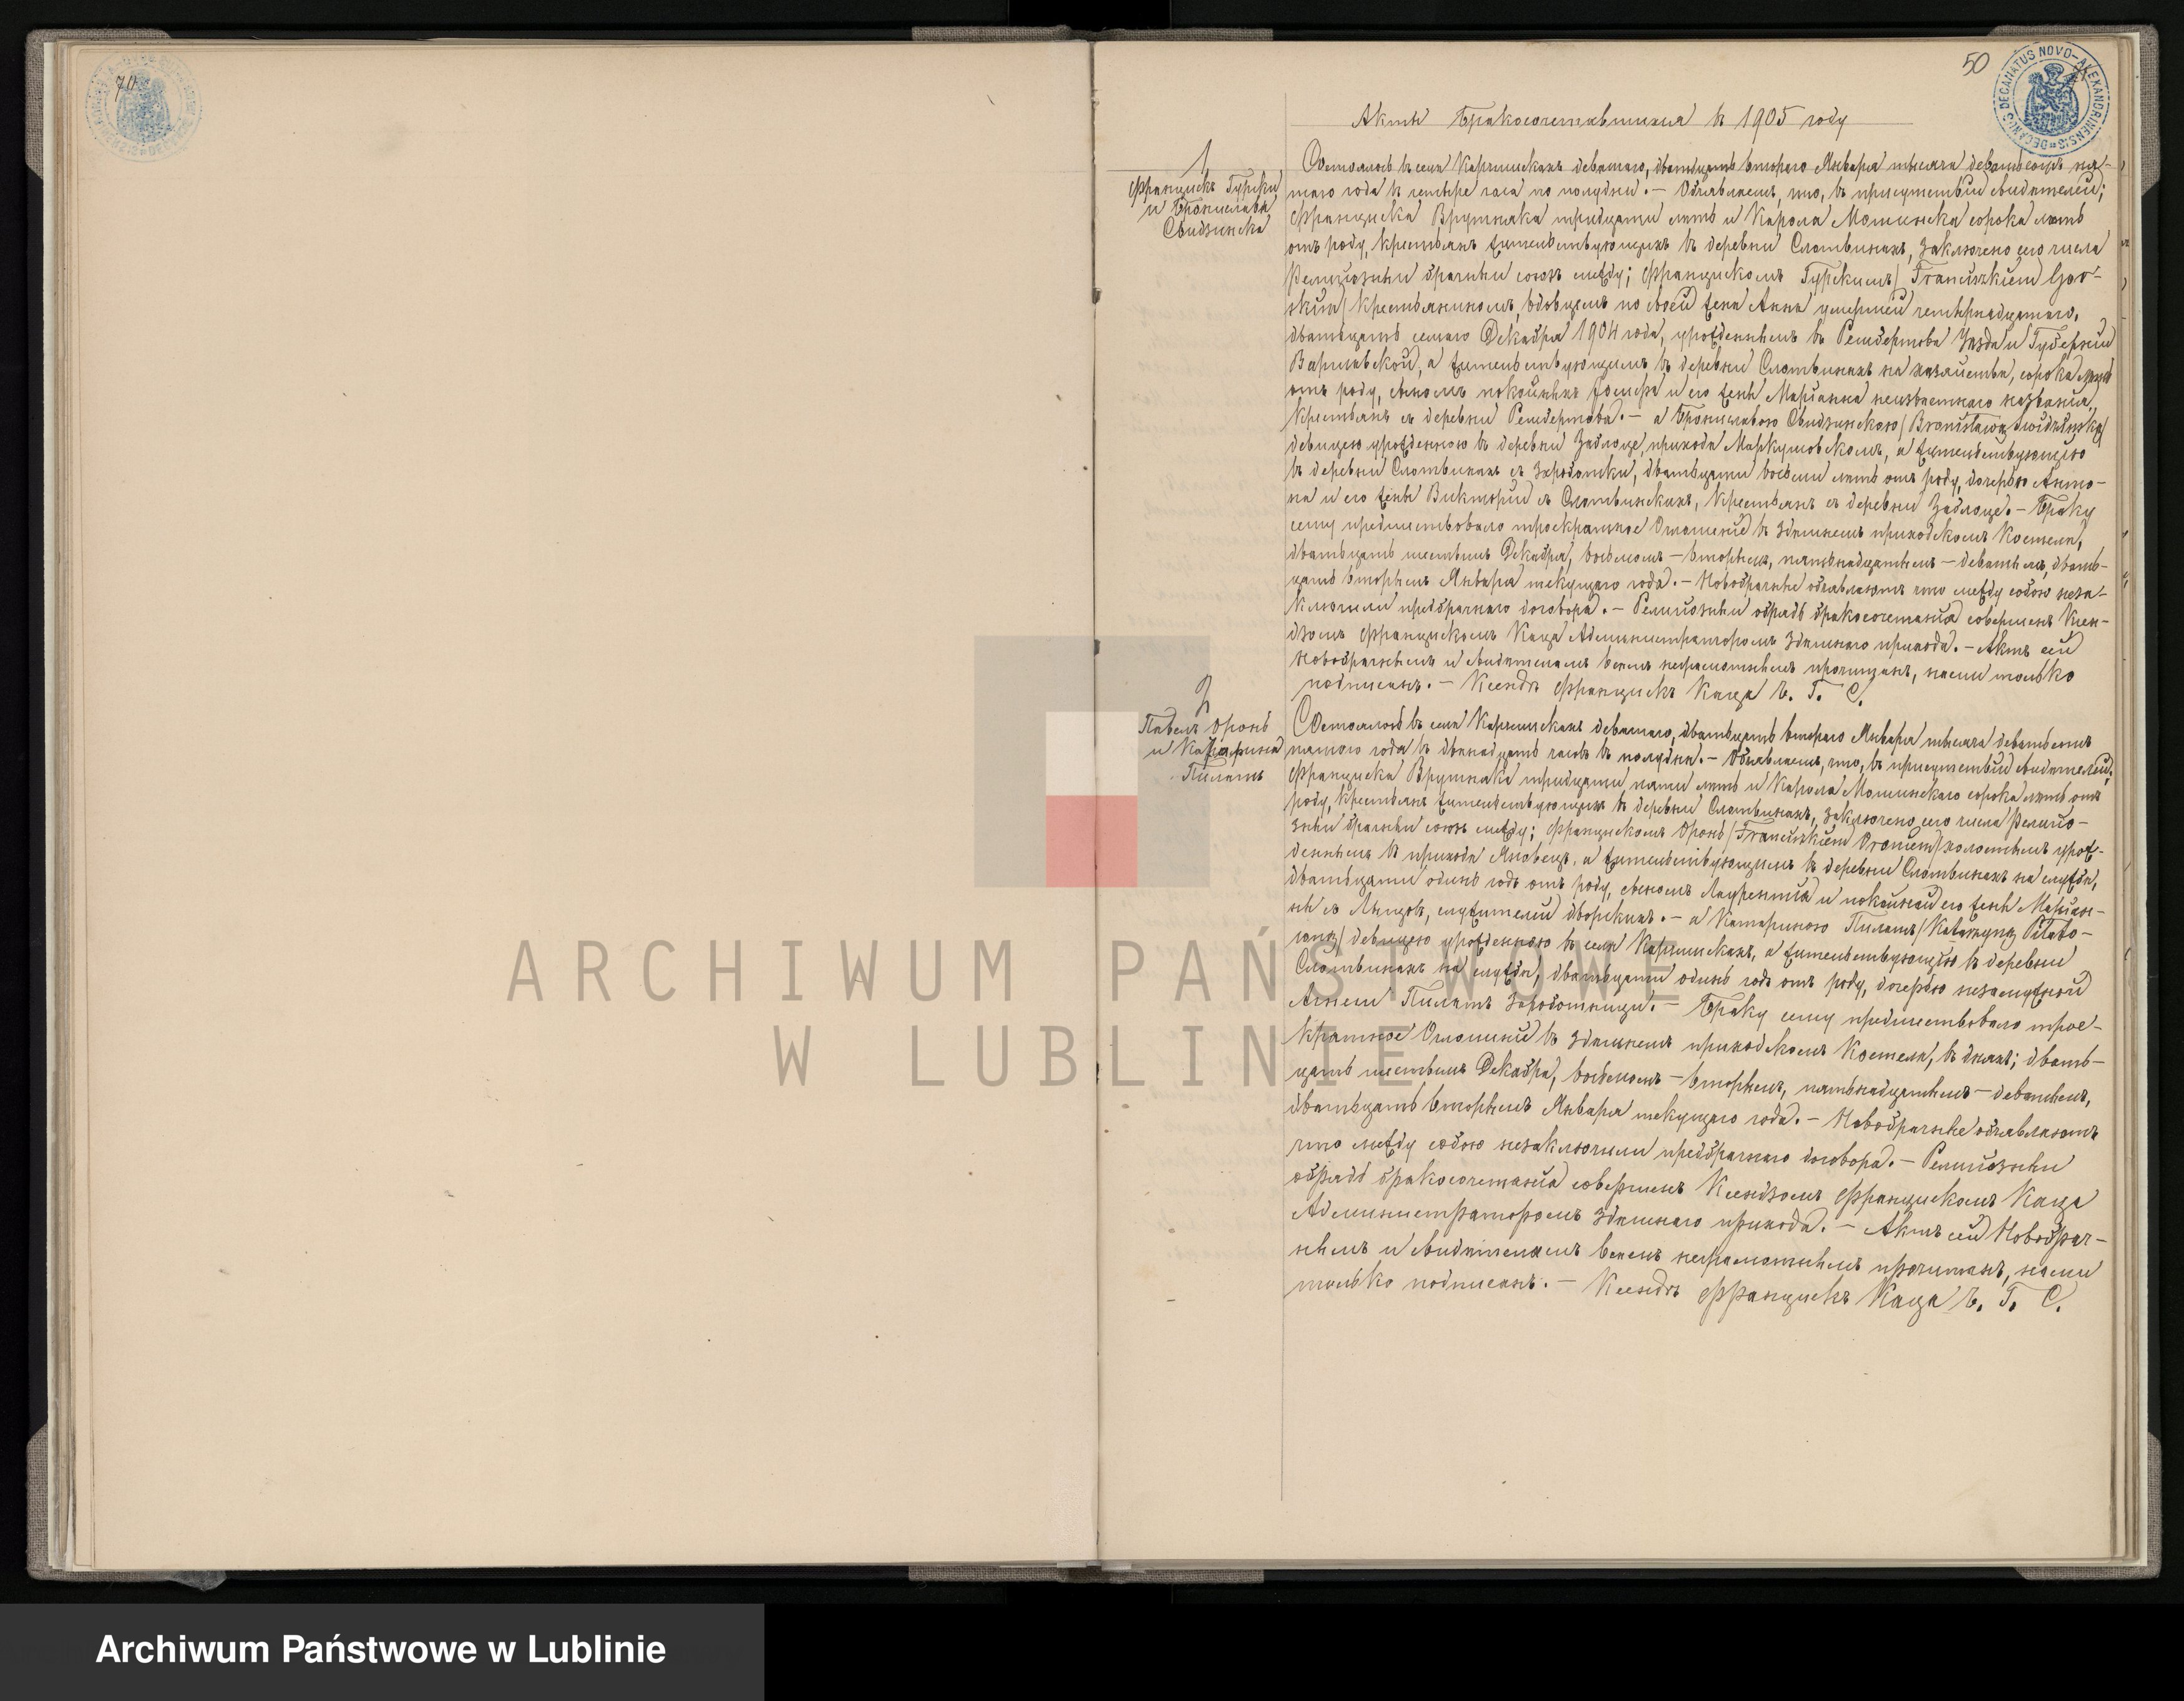 70
50
DECANUS DECANATUS NOVO-ALEXANDRINENSIS
Акты Бракосочетавшихся в 1905 году
1
Францискъ Гурски
и Бронислава
Свидзинска
Состоялось въ селѣ Карчмискахъ девятаго, двадцать втораго Января тысяча девятьсотъ пя-
таго года в четыре часа по полудни. — Объявляемъ, что, въ присутствіи свидѣтелей;
Франциска Врутняка тридцати лѣтъ и Кароля сорока лѣтъ
отъ роду, крестьянъ жительствующихъ въ деревни Слотвинахъ, заключено сего числа
Религіозный брачный союзъ между; Францискомъ Гурскимъ / Franciszkiem Gór-
skim / крестьяниномъ, вдовцемъ по своей женѣ Аннѣ умершей четырнадцатаго,
двадцать седьмаго Декабря 1904 года, урожденнымъ въ Рембертовѣ Уѣзда и Губерніи
Варшавской, а жительствующимъ въ деревни Слотвинахъ на хозяйствѣ, сорока лѣтъ
отъ роду, сыномъ покойныхъ Іосифа и его жены Маріанна неизвѣстнаго названія,
крестьянъ съ деревни Рембертова. — а Брониславою Свидзинскою / Bronisławą Świdzińską /
девицею урожденною въ деревни Заблоце, прихода Маркушовскомъ, а жительствующею
въ деревни Слотвинахъ съ Заработки, двадцати восьми лѣтъ отъ роду, дочерью Анто-
на и его жены Викторіи съ Слотвинскихъ, крестьянъ съ деревни Заблоце. — Браку
сему предшествовало троекратное Оглашеніе въ здѣшнемъ приходскомъ Костелѣ,
двадцать шестымъ Декабря, восьмомъ — вторымъ, пятнадцатымъ — девятымъ, двад-
цать вторымъ Января текущаго года. — Новобрачные объявляютъ что между собою неза-
ключили предбрачнаго договора. — Религіозный обрядъ бракосочетанія совершенъ Ксен-
дзомъ Францискомъ Каца Администраторомъ здѣшняго прихода. — Актъ сей
Новобрачнымъ и свидѣтелямъ всемъ неграмотнымъ прочитанъ, нами только
подписанъ. — Ксендзъ Францискъ Каца Ч. Г. С.
2
Павелъ Оронь
и Катарина
Пилатъ
Состоялось въ селѣ Карчмискахъ девятаго, двадцать втораго Января тысяча девятьсотъ
пятаго года въ двѣнадцать часовъ въ полудни. — Объявляемъ, что, въ присутствіи свидѣтелей;
Франциска Врутняка тридцати пяти лѣтъ и Кароля сорока лѣтъ отъ
роду, крестьянъ жительствующихъ въ деревни Слотвинахъ, заключено сего числа Религіо-
зный брачный союзъ между; Францискомъ Оронь / Franciszkiem Oroniem / холостымъ урож-
деннымъ въ приходѣ Яновецъ, а жительствующимъ въ деревни Слотвинахъ на службѣ,
двадцати одинъ годъ отъ роду, сыномъ Лаврентія и покойной его жены Маріан-
ны съ служителей дворскихъ. — а Катариною Пилатъ / Katarzyną Pilato-
wną / девицею урожденною въ селѣ Карчмискахъ, а жительствующею въ деревни
Слотвинахъ на службѣ, двадцати одинъ годъ отъ роду, дочерью незамужной
Агнеши Пилатъ Заработницы. — Браку сему предшествовало трое-
кратное Оглашеніе въ здѣшнемъ приходскомъ Костелѣ, въ дняхъ; двад-
цать шестымъ Декабря, восьмомъ — вторымъ, пятнадцатымъ — девятымъ,
двадцать вторымъ Января текущаго года. — Новобрачные объявляютъ
что между собою незаключили предбрачнаго договора. — Религіозный
обрядъ бракосочетанія совершенъ Ксендзомъ Францискомъ Каца
Администраторомъ здѣшняго прихода. — Актъ сей Новобрач-
нымъ и свидѣтелямъ всемъ неграмотнымъ прочитанъ, нами
только подписанъ. — Ксендзъ Францискъ Каца Ч. Г. С.
ARCHIWUM PAŃSTWOWE
W LUBLINIE
Archiwum Państwowe w Lublinie